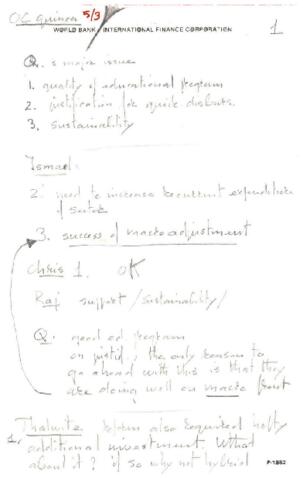 OC Guinea 5/3
WORLD BANK / INTERNATIONAL FINANCE CORPORATION
1
Q. s major issue
1. quality of educational program
2. justification for quick disburs.
3. sustainability
Ismael:
2. need to increase recurrent expenditure
of sector
3. success of macro adjustment
Chris 1. OK
Raj support / sustainability /
Q. good ed program
on justif, the only reason to
go ahead with this is that they
are doing well on macro front
1. Thalwitz reform also required hefty
additional investment. What
about it? if so why not hybrid
P-1852